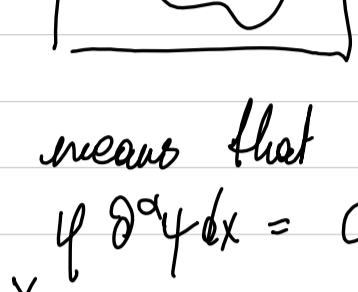 means that
φ ∂^α ψ dx =